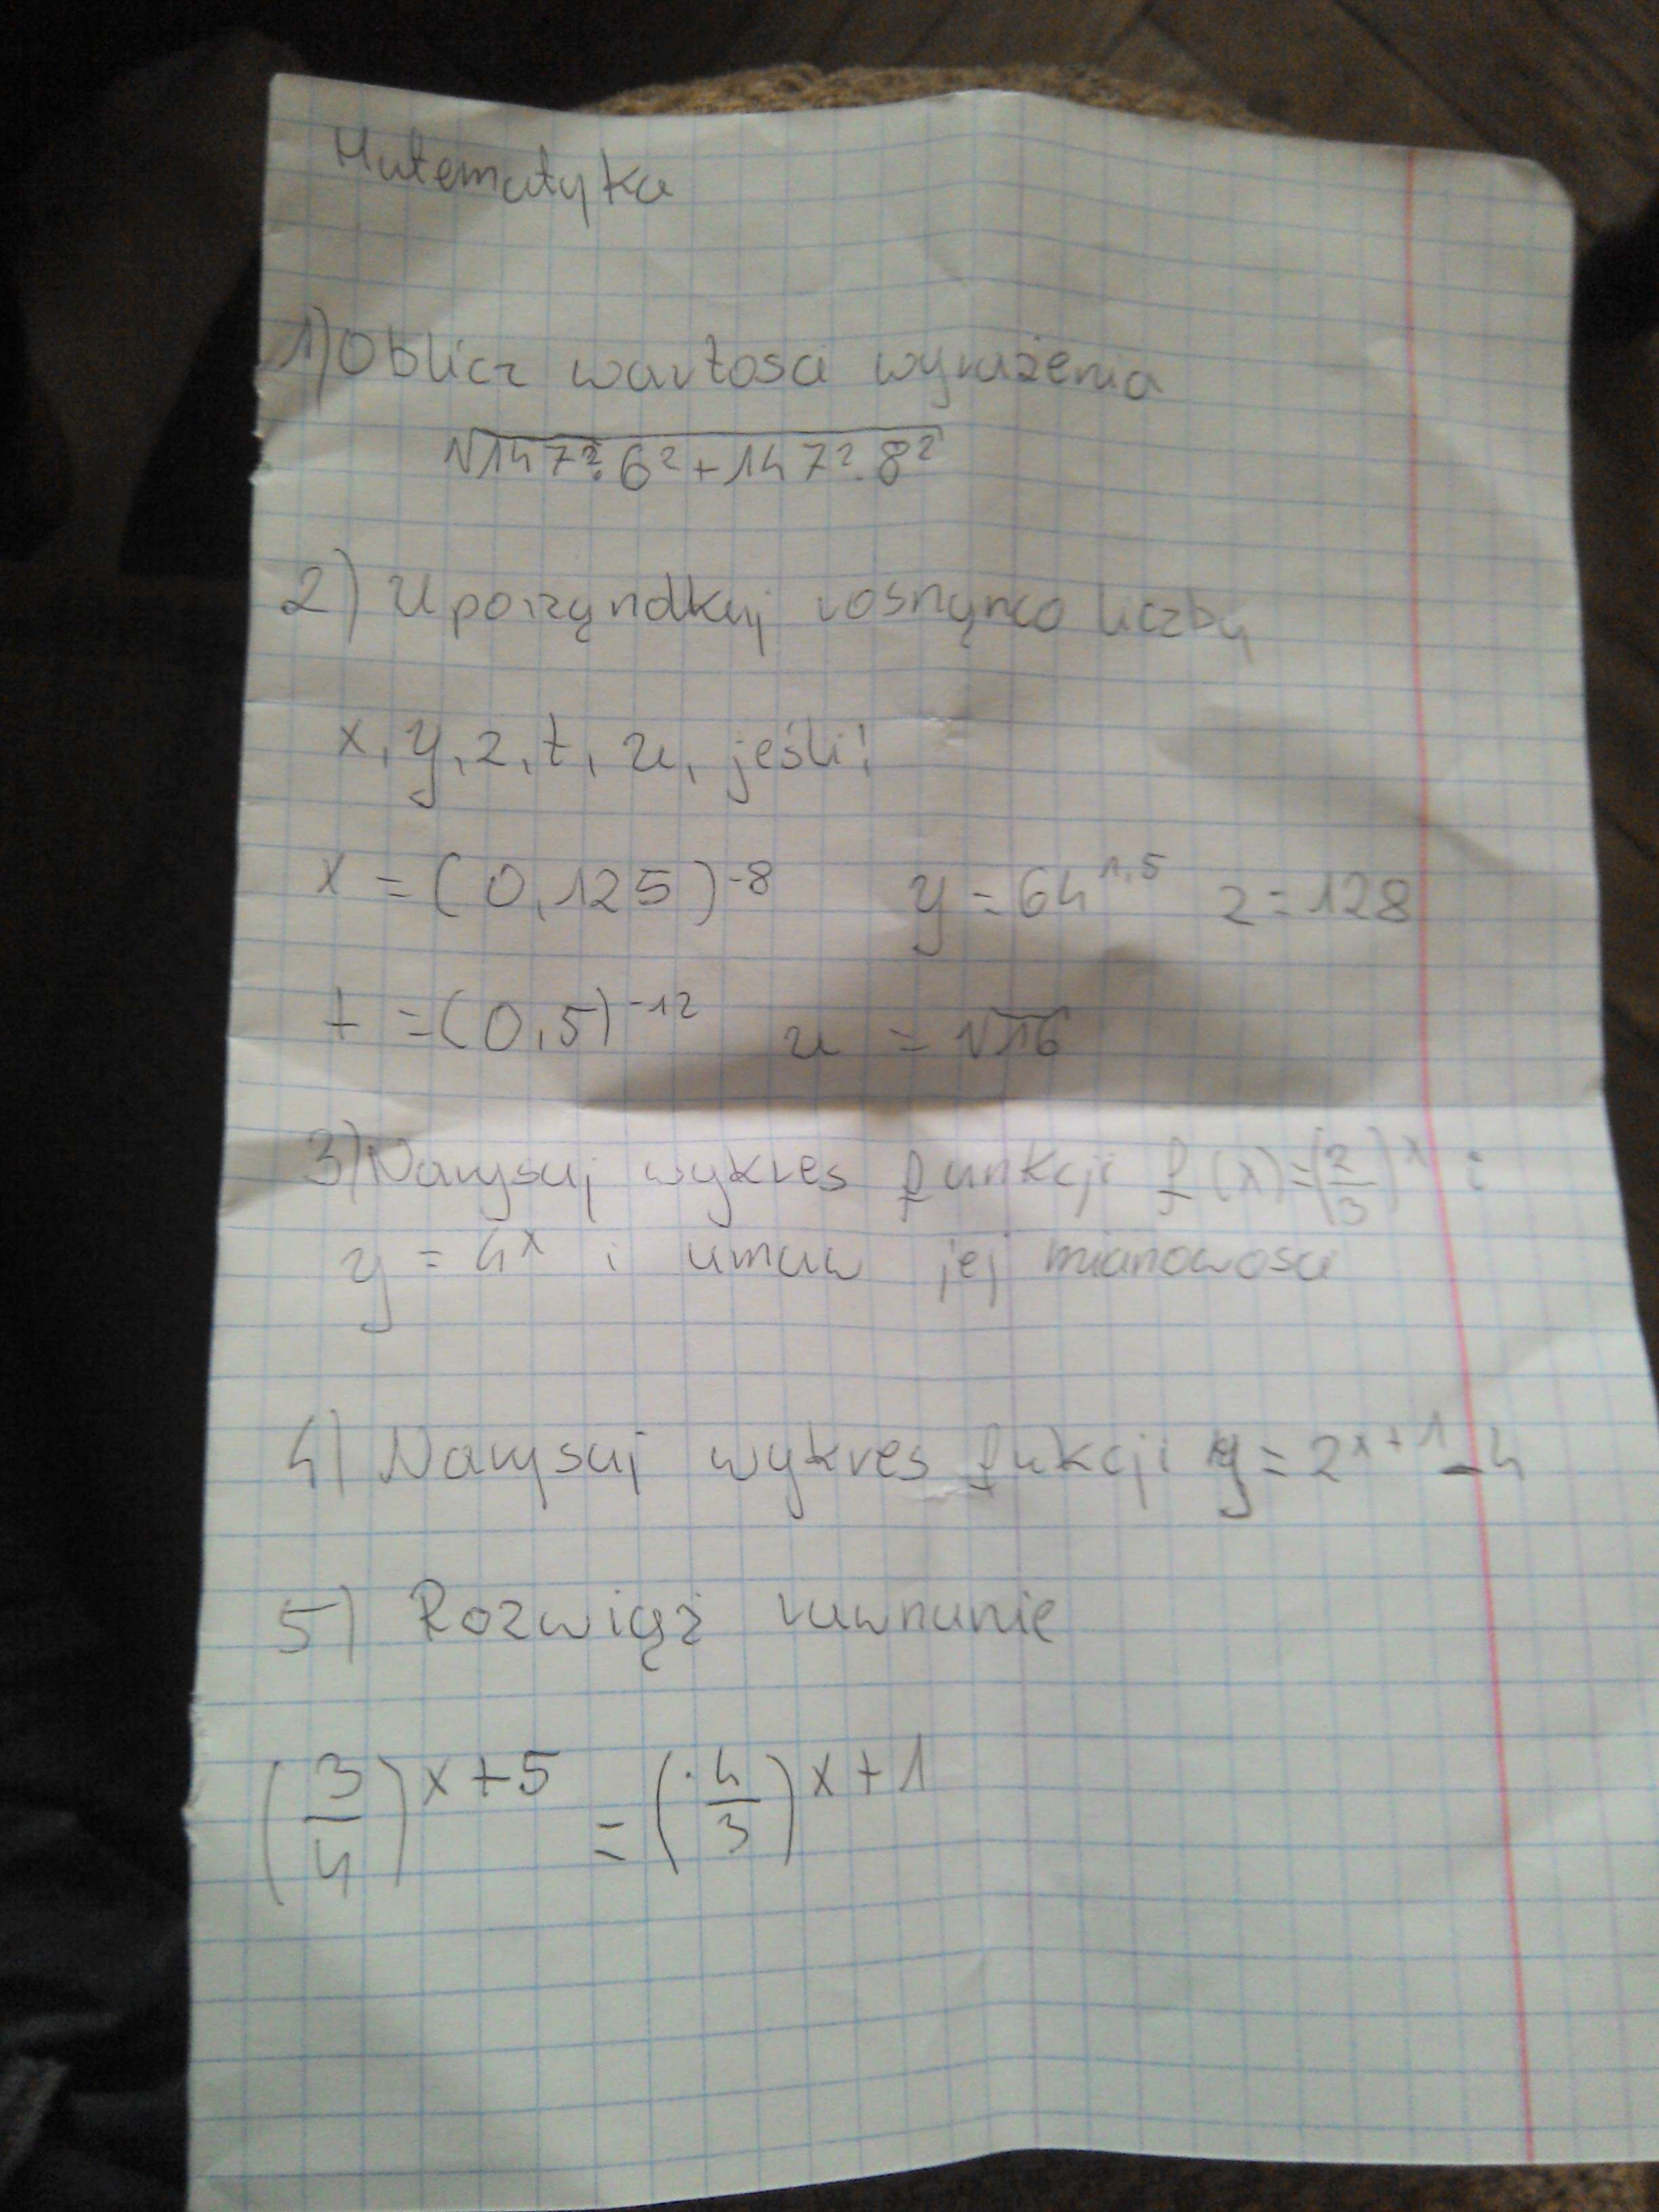 Matematyka
1) Oblicz wartosci wyrażenia
√147²·6²+147²·8²
2) Uporzyndkuj rosnynco liczby
x, y, z, t, u, jeśli!
x = (0,125)⁻⁸ y = 64¹,⁵ z = 128
t = (0,5)⁻¹² u = √16
3) Narysuj wykres funkcji f(x)=(2/3)ˣ i
y = 4ˣ i umuw jej mianowosci
4) Narysuj wykres fukcji y = 2ˣ⁺¹ - 4
5) Rozwiąż ruwnanie
(3/4)ˣ⁺⁵ = (4/3)ˣ⁺¹